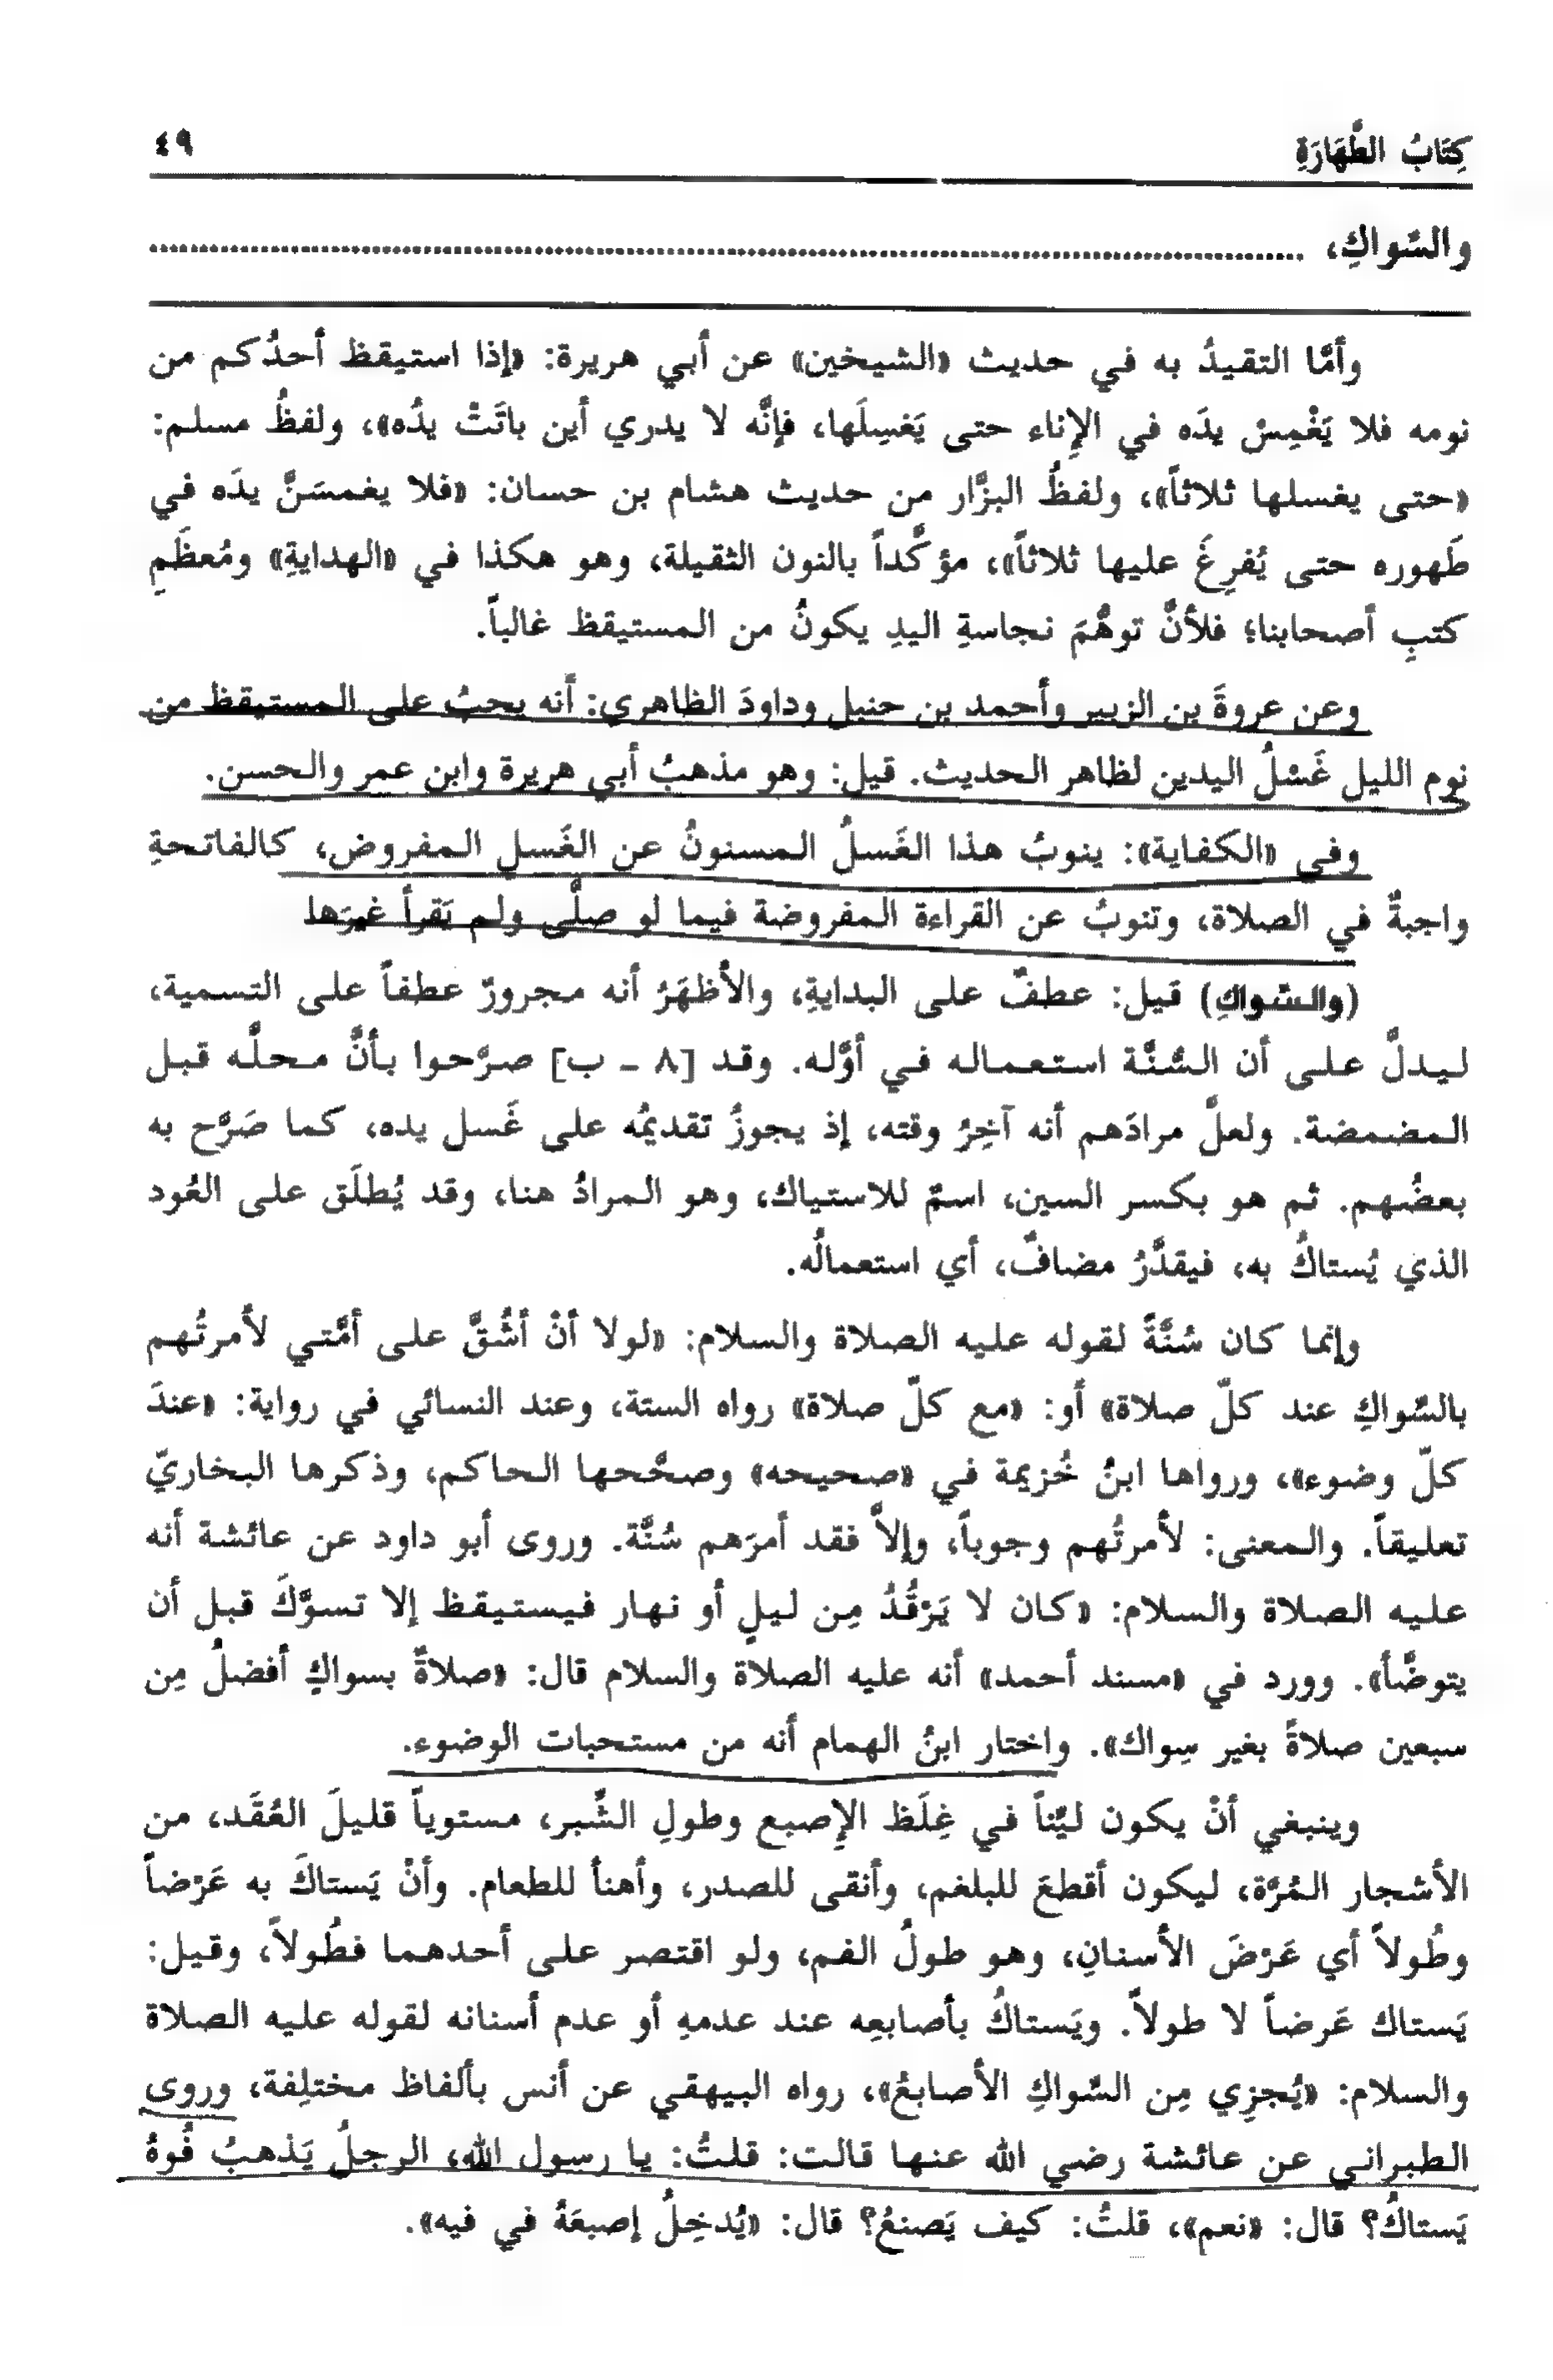 كِتَابُ الطَّهَارَةِ ٤٩
والسِّواكِ، ......................................................
وأمَّا التقيدُ به في حديث «الشيخين» عن أبي هريرة: «إذا استيقظ أحدُكم من
نومه فلا يَغْمِسْ يدَه في الإِناء حتى يَغسِلَها، فإنَّه لا يدري أين باتَتْ يدُه»، ولفظُ مسلم:
«حتى يغسلها ثلاثاً»، ولفظُ البزَّار من حديث هشام بن حسان: «فلا يغمسَنَّ يدَه في
طَهوره حتى يُفرِغَ عليها ثلاثاً»، مؤكَّداً بالنون الثقيلة، وهو هكذا في «الهدايةِ» ومُعظَمِ
كتبِ أصحابنا؛ فلأنَّ توهُّمَ نجاسةِ اليدِ يكونُ من المستيقظ غالباً.
وعن عروةَ بن الزبير وأحمد بن حنبل وداودَ الظاهري: أنه يجبُ على المستيقظ من
نوم الليل غَسْلُ اليدين لظاهر الحديث. قيل: وهو مذهبُ أبي هريرة وابن عمر والحسن.
وفي «الكفاية»: ينوبُ هذا الغَسلُ المسنونُ عن الغَسلِ المفروض، كالفاتحةِ
واجبةٌ في الصلاة، وتنوبُ عن القراءة المفروضة فيما لو صلَّى ولم يَقرأ غيرَها
(والسِّواكِ) قيل: عطفٌ على البدايةِ، والأظهَرُ أنه مجرورٌ عطفاً على التسمية،
ليدلَّ على أن السُّنَّة استعماله في أوَّله. وقد [٨ - ب] صرَّحوا بأنَّ محلَّه قبل
المضمضة. ولعلَّ مرادَهم أنه آخِرُ وقته، إذ يجوزُ تقديمُه على غَسل يده، كما صَرَّح به
بعضُهم. ثم هو بكسر السين، اسمٌ للاستياك، وهو المرادُ هنا، وقد يُطلَق على العُود
الذي يُستاكُ به، فيقدَّرُ مضافٌ، أي استعمالُه.
وإنما كان سُنَّةً لقوله عليه الصلاة والسلام: «لولا أنْ أشُقَّ على أمَّتي لأمرتُهم
بالسِّواكِ عند كلّ صلاة» أو: «مع كلّ صلاة» رواه الستة، وعند النسائي في رواية: «عندَ
كلّ وضوء»، ورواها ابنُ خُزيمة في «صحيحه» وصحَّحها الحاكم، وذكرها البخاريّ
تعليقاً. والمعنى: لأمرتُهم وجوباً، وإلاَّ فقد أمرَهم سُنَّة. وروى أبو داود عن عائشة أنه
عليه الصلاة والسلام: «كان لا يَرْقُدُ مِن ليلٍ أو نهار فيستيقظ إلا تسوَّكَ قبل أن
يتوضَّأ». وورد في «مسند أحمد» أنه عليه الصلاة والسلام قال: «صلاةٌ بسواكٍ أفضلُ مِن
سبعين صلاةً بغير سِواك». واختار ابنُ الهمام أنه من مستحبات الوضوء.
وينبغي أنْ يكون ليِّناً في غِلَظ الإصبع وطولِ الشِّبر، مستوياً قليلَ العُقَد، من
الأشجار المُرَّة، ليكون أقطعَ للبلغم، وأنقى للصدر، وأهنأ للطعام. وأنْ يَستاكَ به عَرْضاً
وطُولاً أي عَرْضَ الأسنانِ، وهو طولُ الفم، ولو اقتصر على أحدهما فطُولاً، وقيل:
يَستاك عَرضاً لا طولاً. ويَستاكُ بأصابعِه عند عدمهِ أو عدم أسنانه لقوله عليه الصلاة
والسلام: «يُجزِي مِن السِّواكِ الأصابعُ»، رواه البيهقي عن أنس بألفاظ مختلِفة، وروى
الطبراني عن عائشة رضي الله عنها قالت: قلتُ: يا رسول الله، الرجلُ يَذهبُ فُوهُ
يَستاكُ؟ قال: «نعم»، قلتُ: كيف يَصنعُ؟ قال: «يُدخِلُ إصبعَهُ في فيه».